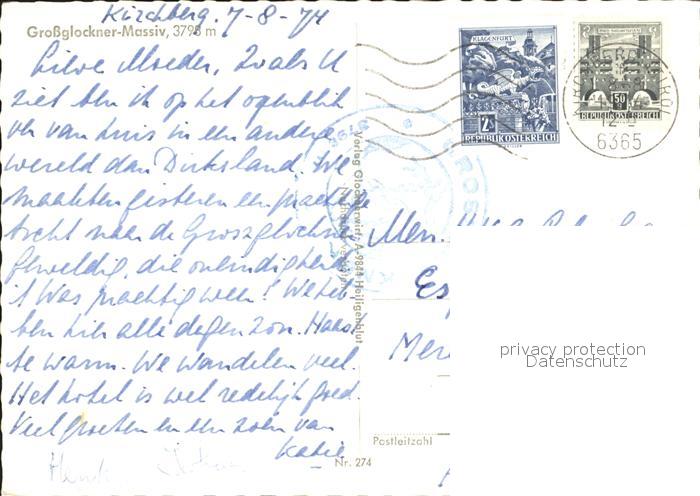 Kirchberg. 7-8-74
Großglockner-Massiv, 3798 m
Lieve Moeder, Zoals U
ziet ben ik op het ogenblik
ver van huis in een andere
wereld dan Dirksland. We
maakten gisteren een prachtige
tocht naar de Groszglockner
Geweldig, die
't Was prachtig weer! We heb-
ben hier alle dagen zon. Haast
te warm. We wandelen veel.
Het hotel is wel redelijk goed.
Veel groeten en een zoen van
Katie
Henk
Verlag Glocknerwirt, A-9844 Heiligenblut
Nr. 274
KLAGENFURT
2S
REPUBLIK ÖSTERREICH
50
REPUBLIK ÖSTERREICH
6365
GROSS
Men
Es
Mer
Postleitzahl
privacy protection
Datenschutz